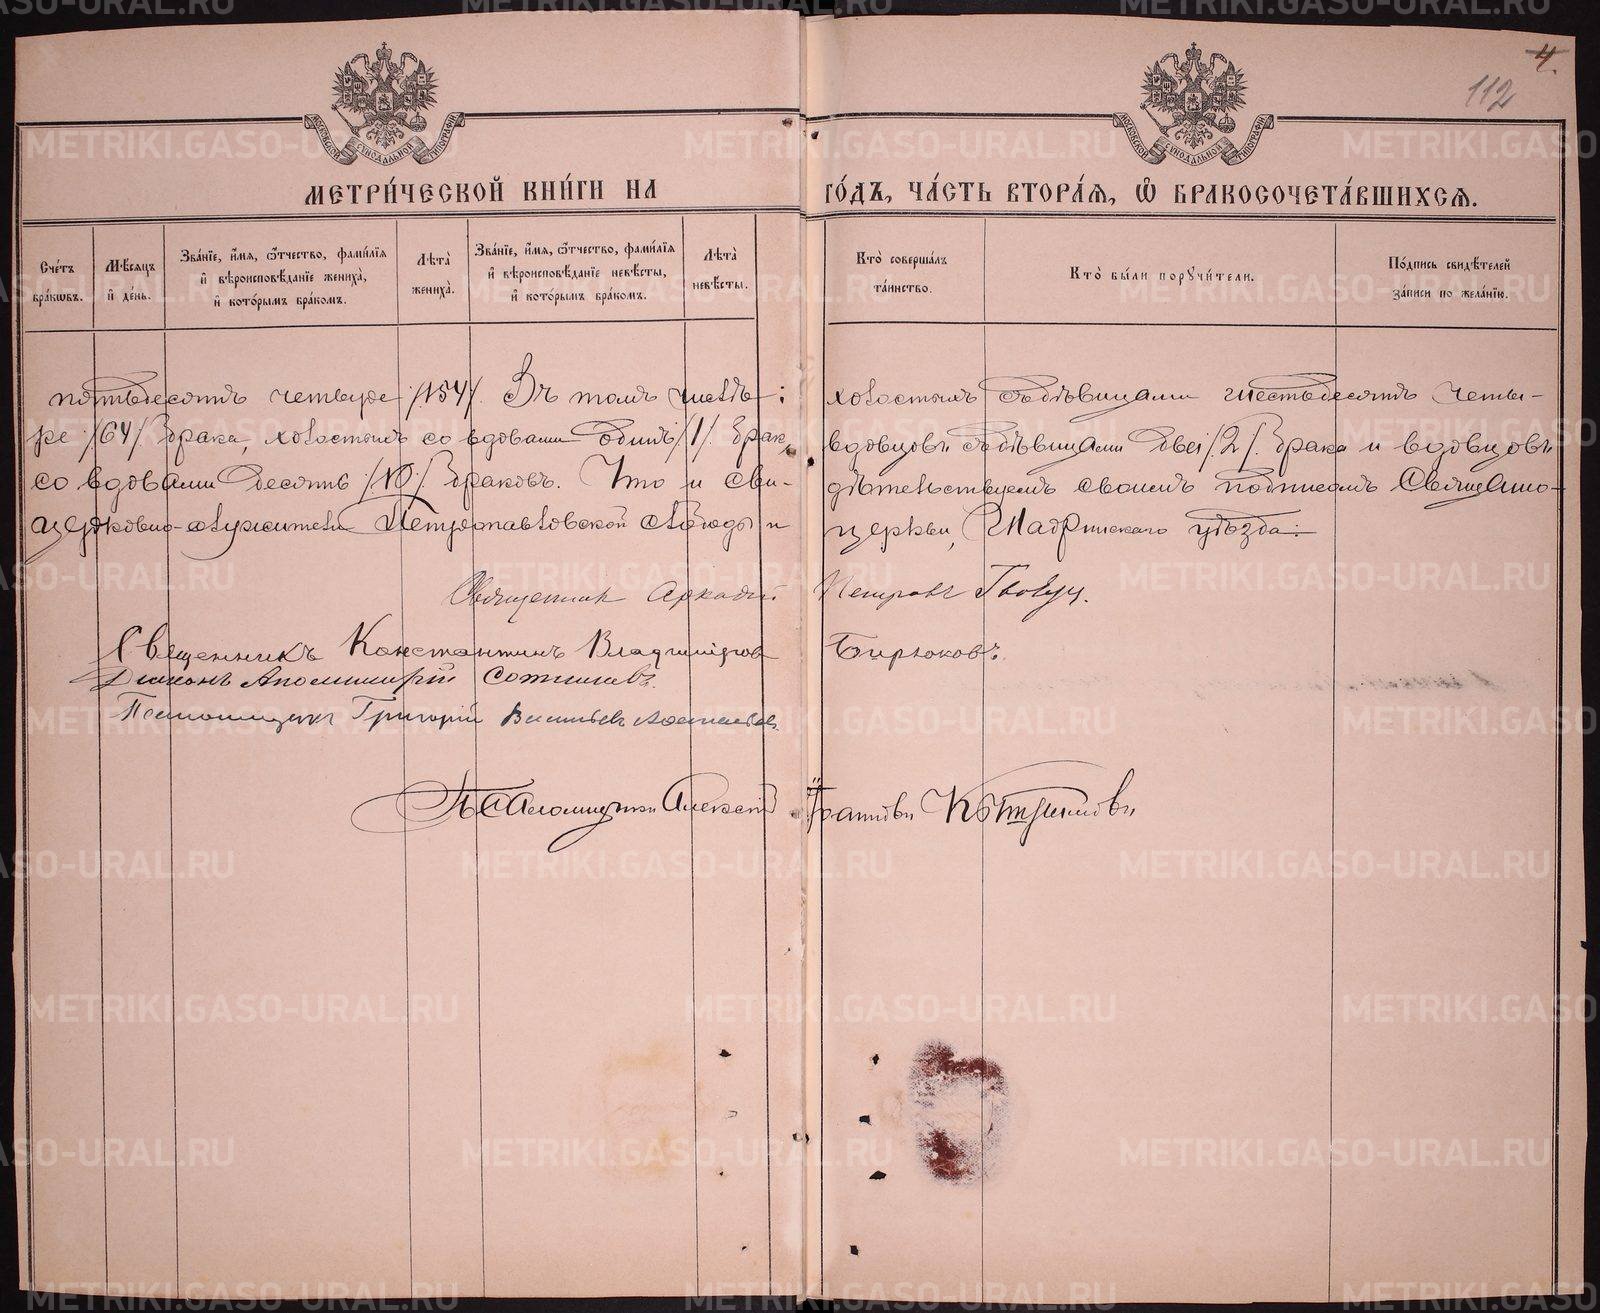 4.
112
МОСКОВСКОЙ СѴНОДАЛЬНОЙ ТИПОГРАФІИ
МОСКОВСКОЙ СѴНОДАЛЬНОЙ ТИПОГРАФІИ
МЕТРИ́ЧЕСКОЙ КНИ́ГИ НА ГО́ДЪ, ЧА́СТЬ ВТОРА́Я, Ѽ БРАКОСОЧЕТА́ВШИХСЯ.
Сче́тъ бра́кѡвъ.
Мѣ́сяцъ и҆ де́нь.
Зва́нїе, и҆́мя, ѻ҆́тчество, фами́лїя и҆ вѣроисповѣ́данїе жениха̀, и҆ кото́рымъ бра́комъ.
Лѣта̀ жениха̀.
Зва́нїе, и҆́мя, ѻ҆́тчество, фами́лїя и҆ вѣроисповѣ́данїе невѣ́сты, и҆ кото́рымъ бра́комъ.
Лѣта̀ невѣ́сты.
Кто̀ соверша́лъ та́инство.
Кто̀ бы́ли порꙋчи́тели.
По́дпись свидѣ́телей за́писи по жела́нїю.
пятьдесятъ четыре /154/. Въ томъ числѣ: холостыхъ съ дѣвицами шестьдесятъ четы-
ре /64/ брака, холостыхъ со вдовами одинъ /1/ бракъ, вдовцовъ съ дѣвицами два /2/ брака и вдовцовъ
со вдовами десять /10/ браковъ. Что и сви- дѣтельствуемъ своимъ подписомъ Священно-
церковно-служители Петропавловской слободы и церкви, Шадринскаго уѣзда:
Священник Аркадій Петровъ
Священникъ Константинъ Владиміров Бирюковъ.
Діаконъ Аполлинарій
Псаломщикъ Григорій Васильевъ
Псаломщикъ Алексѣй Іоанновъ